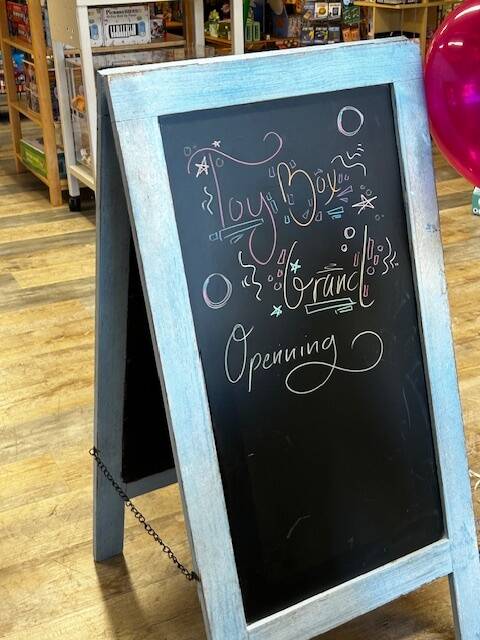 Toy Box
Grand
Openning